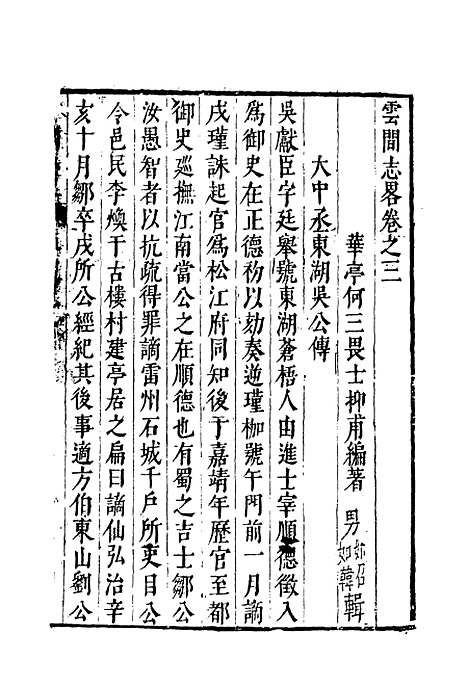 雲間志畧卷之三
華亭何三畏士抑甫編著 男如召如韓輯
大中丞東湖吳公傳
吳獻臣字廷舉號東湖蒼梧人由進士宰順德徵入
爲御史在正德初以劾奏逆瑾枷號午門前一月謫
戌瑾誅起官爲松江府同知後于嘉靖年歷官至都
御史廵撫江南當公之在順德也有蜀之吉士鄒公
汝愚智者以抗疏得罪謫雷州石城千戶所吏目公
令邑民李煥于古樓村建亭居之扁曰謫仙弘治辛
亥十月鄒卒戌所公經紀其後事適方伯東山劉公